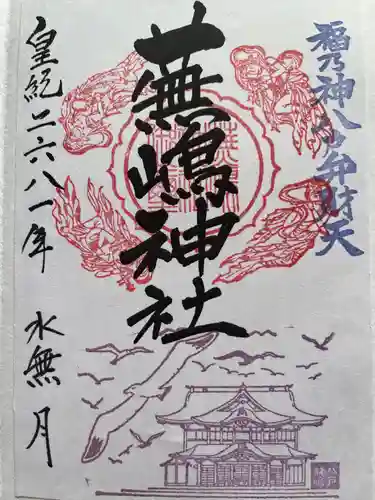 福乃神八戸弁財天
蕪嶋神社
皇紀二六八一年 水無月